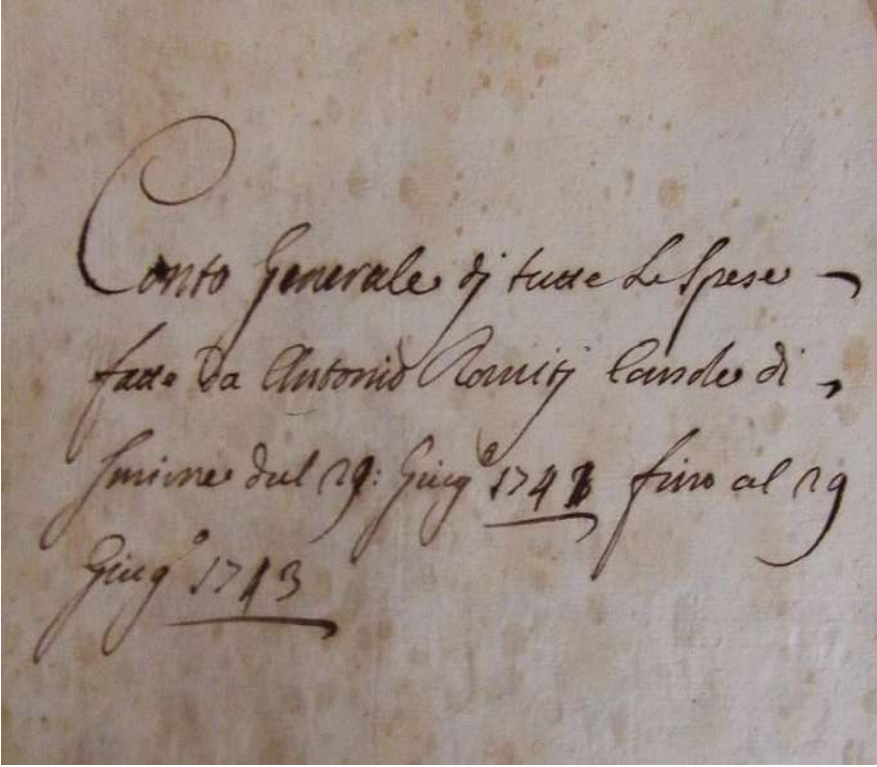 Conto Generale dj tutte Le Spese
fatte Da Antonio Romitj di
dal 29: Giug.º fino al 29
Giug.º 1743